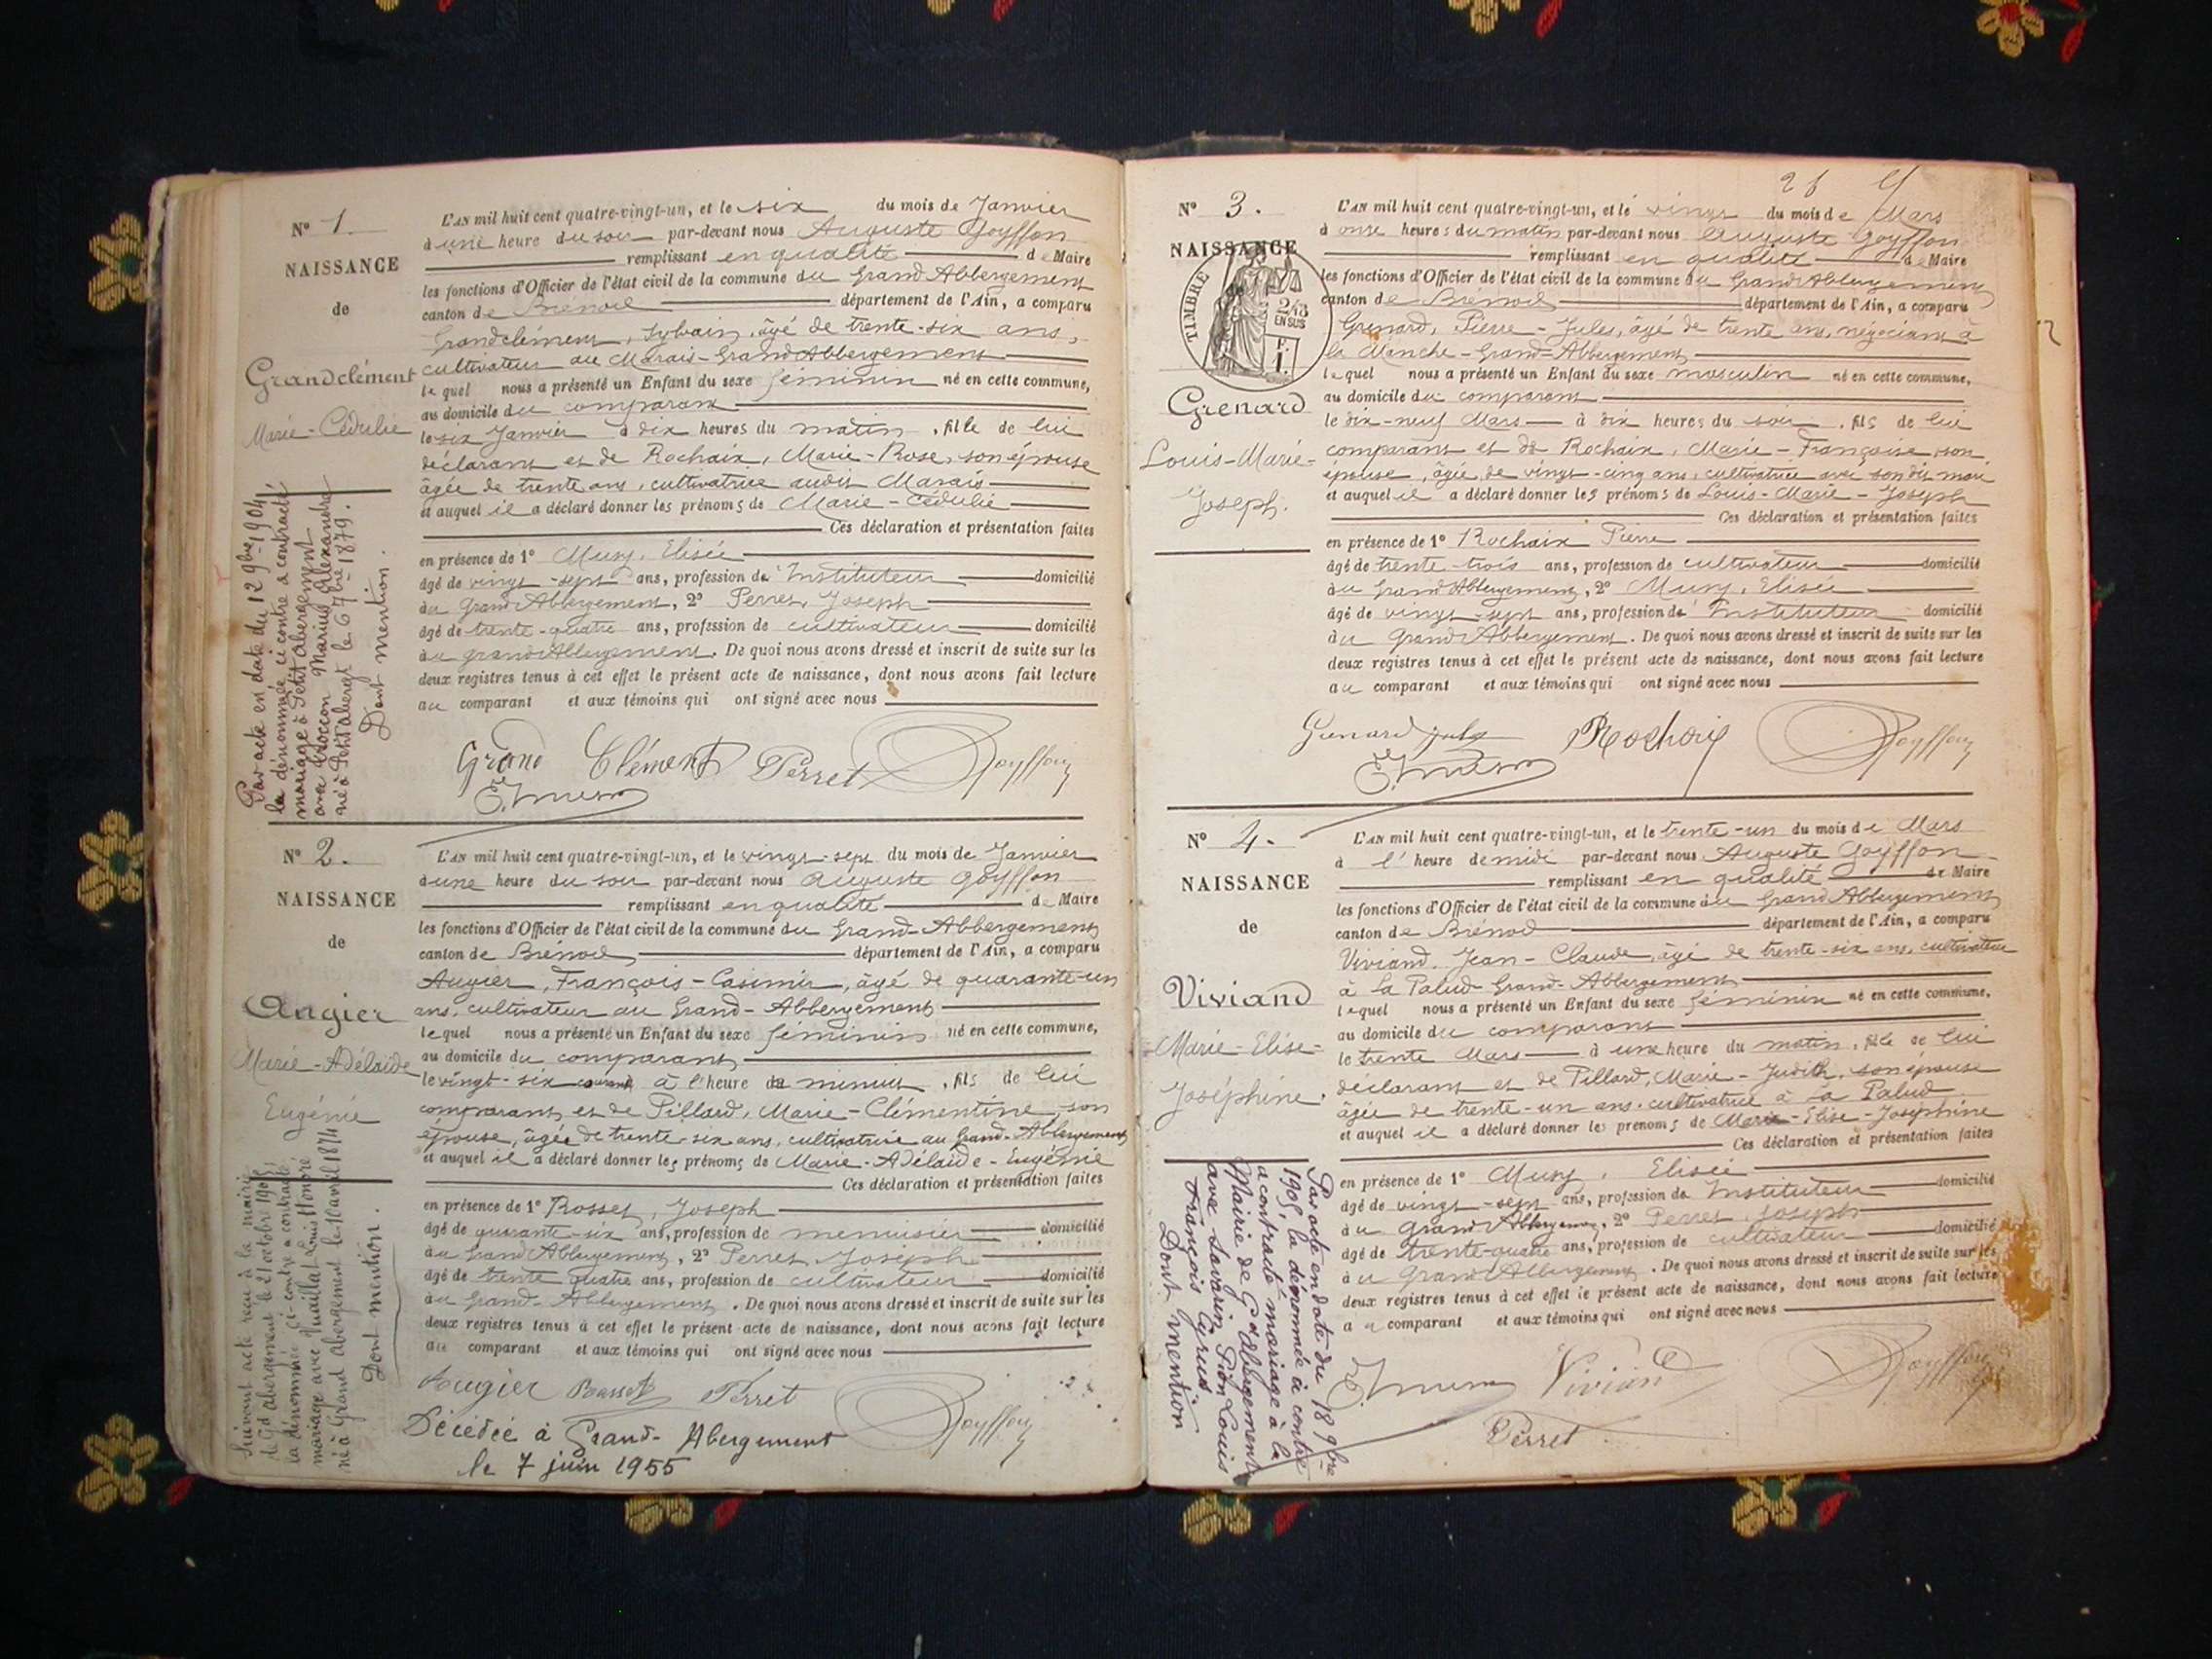 N° 1.
NAISSANCE
de
Grandclément
Marie-Cédulie
Par acte en date du 12 9bre 1904,
la dénommée ci contre a contracté
mariage à Petit Abergement
avec Marius Alexandre
né à Petit Abergt le 6 7bre 1879.
Dont mention.
L'AN mil huit cent quatre-vingt-un, et le six du mois de Janvier
à une heure du soir par-devant nous Auguste Goyffon
remplissant en qualité de Maire
les fonctions d'Officier de l'état civil de la commune du Grand Abbergement
canton de Brénod département de l'Ain, a comparu
Grandclément, Sylvain, âgé de trente-six ans,
cultivateur au Marais-Grand Abbergement
lequel nous a présenté un Enfant du sexe féminin né en cette commune,
au domicile du comparant
le six Janvier à dix heures du matin, fille de lui
déclarant et de Rochaix, Marie-Rose, son épouse
âgée de trente ans, cultivatrice audit Marais
et auquel il a déclaré donner les prénoms de Marie-Cédulie
Ces déclaration et présentation faites
en présence de 1° Muny, Elisée
âgé de vingt-sept ans, profession de Instituteur domicilié
au Grand Abbergement, 2° Perret, Joseph
âgé de trente-quatre ans, profession de cultivateur domicilié
au Grand Abbergement. De quoi nous avons dressé et inscrit de suite sur les
deux registres tenus à cet effet le présent acte de naissance, dont nous avons fait lecture
au comparant et aux témoins qui ont signé avec nous
Grand Clément Perret Goyffon
N° 2.
NAISSANCE
de
Augier
Marie-Adélaïde
Eugénie
Suivant acte reçu à la mairie
de Gd abergement le 21 octobre 1905,
la dénommée ci-contre a contracté
mariage avec Vuaillat Louis Honoré
né à Grand abergement le 10 avril 1874
Dont mention.
L'AN mil huit cent quatre-vingt-un, et le vingt-sept du mois de Janvier
à une heure du soir par-devant nous Auguste Goyffon
remplissant en qualité de Maire
les fonctions d'Officier de l'état civil de la commune du Grand-Abbergement
canton de Brénod département de l'Ain, a comparu
Augier, François-Casimir, âgé de quarante-un
ans, cultivateur au Grand-Abbergement
lequel nous a présenté un Enfant du sexe féminin né en cette commune,
au domicile du comparant
le vingt-six courant à l'heure de minuit, fils de lui
comparant et de Pillard, Marie-Clémentine, son
épouse, âgée de trente-six ans, cultivatrice au Grand-Abbergement
et auquel il a déclaré donner les prénoms de Marie-Adélaïde-Eugénie
Ces déclaration et présentation faites
en présence de 1° Rosset, Joseph
âgé de quarante-six ans, profession de menuisier domicilié
au Grand Abbergement, 2° Perret Joseph
âgé de trente quatre ans, profession de cultivateur domicilié
au Grand-Abbergement. De quoi nous avons dressé et inscrit de suite sur les
deux registres tenus à cet effet le présent acte de naissance, dont nous avons fait lecture
au comparant et aux témoins qui ont signé avec nous
Augier Rosset Perret Goyffon
Décédée à Grand-Abergement
le 7 juin 1955
N° 3.
NAISSANCE
de
TIMBRE
2/10
EN SUS
F.
1.
Grenard
Louis-Marie-
Joseph.
L'AN mil huit cent quatre-vingt-un, et le vingt du mois de Mars
à onze heures du matin par-devant nous Auguste Goyffon
remplissant en qualité de Maire
les fonctions d'Officier de l'état civil de la commune du Grand Abbergement
canton de Brénod département de l'Ain, a comparu
Grenard, Pierre-Jules, âgé de trente ans, négociant à
la Manche-Grand-Abbergement
lequel nous a présenté un Enfant du sexe masculin né en cette commune,
au domicile du comparant
le dix-neuf Mars à dix heures du soir, fils de lui
comparant et de Rochaix, Marie-Françoise, son
épouse, âgée de vingt-cinq ans, cultivatrice avec son dit mari
et auquel il a déclaré donner les prénoms de Louis-Marie-Joseph
Ces déclaration et présentation faites
en présence de 1° Rochaix Pierre
âgé de trente-trois ans, profession de cultivateur domicilié
au Grand Abbergement, 2° Muny, Elisée
âgé de vingt-sept ans, profession de Instituteur domicilié
au Grand Abbergement. De quoi nous avons dressé et inscrit de suite sur les
deux registres tenus à cet effet le présent acte de naissance, dont nous avons fait lecture
au comparant et aux témoins qui ont signé avec nous
Grenard jules Rochaix Goyffon
N° 4.
NAISSANCE
de
Viviand
Marie-Elise-
Joséphine.
Par acte en date du 18 9bre
1905, la dénommée ci contre
a contracté mariage à la
Mairie de Gd Abergement
avec Savarin Pion Louis
François Cyrus
Dont mention
L'AN mil huit cent quatre-vingt-un, et le trente-un du mois de Mars
à l'heure de midi par-devant nous Auguste Goyffon
remplissant en qualité de Maire
les fonctions d'Officier de l'état civil de la commune du Grand Abbergement
canton de Brénod département de l'Ain, a comparu
Viviand, Jean-Claude, âgé de trente-six ans, cultivateur
à La Palud-Grand-Abbergement
lequel nous a présenté un Enfant du sexe féminin né en cette commune,
au domicile du comparant
le trente Mars à une heure du matin, fille de lui
déclarant et de Pillard, Marie-Judith, son épouse
âgée de trente-un ans, cultivatrice à La Palud
et auquel il a déclaré donner les prénoms de Marie-Elise-Joséphine
Ces déclaration et présentation faites
en présence de 1° Muny, Elisée
âgé de vingt-sept ans, profession de Instituteur domicilié
au Grand Abbergement, 2° Perret, Joseph
âgé de trente-quatre ans, profession de cultivateur domicilié
au Grand Abbergement. De quoi nous avons dressé et inscrit de suite sur les
deux registres tenus à cet effet le présent acte de naissance, dont nous avons fait lecture
au comparant et aux témoins qui ont signé avec nous
Viviand Goyffon
Perret